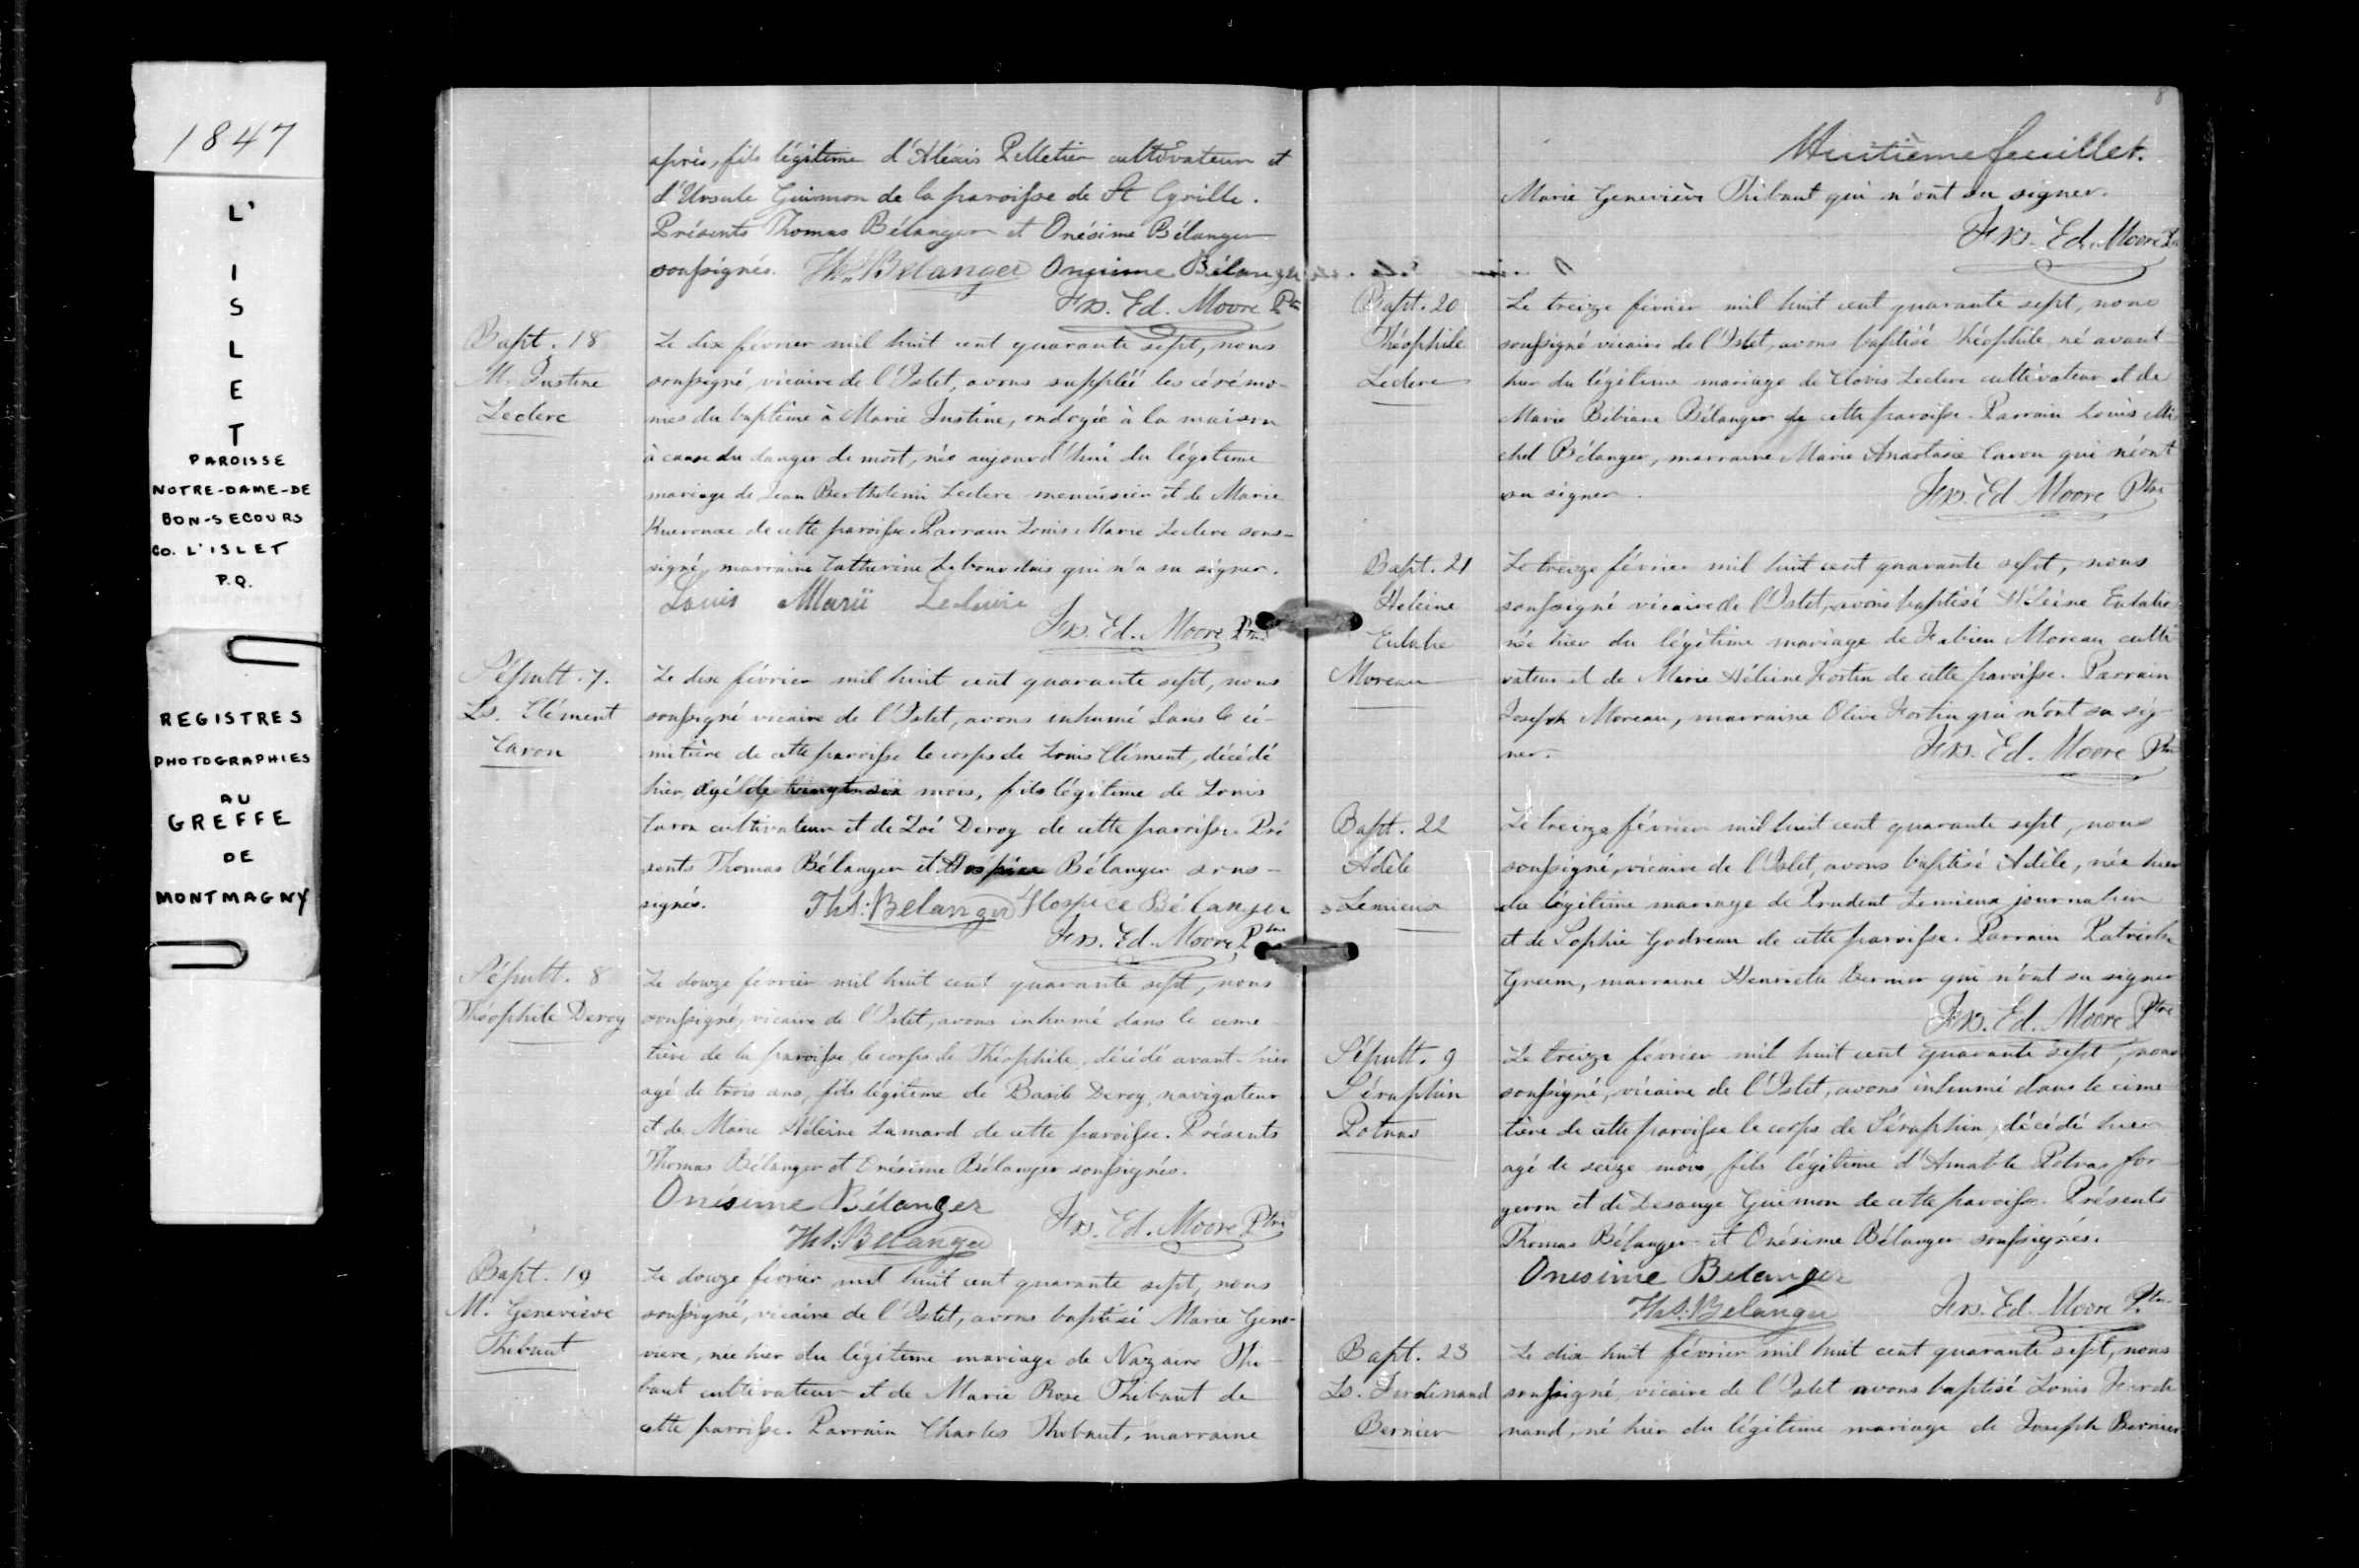 1847
L'
I
S
L
E
T
PAROISSE
NOTRE-DAME-DE
BON-SECOURS
CO. L'ISLET
P.Q.
REGISTRES
PHOTOGRAPHIES
AU
GREFFE
DE
MONTMAGNY
après, fils légitime d'Alexis Pelletier cultivateur et
d'Ursule Guimon de la paroisse de St Cyrille.
Présents Thomas Bélanger et Onésime Bélanger
soussignés. Ths. Bélanger Onésime Bélanger
Frs. Ed. Moore Ptre
Bapt. 18
M. Justine
Leclerc
Le dix février mil huit cent quarante sept, nous
soussigné, vicaire de l'Islet, avons suppléé les cérémo-
nies du baptême à Marie Justine, ondoyée à la maison
à cause du danger de mort, née aujourd'hui du légitime
mariage de Jean Barthelemi Leclerc menuisier et de Marie
de cette paroisse. Parrain Louis Marie Leclerc sous-
signé, marraine Catherine Lebourdais qui n'a su signer.
Louis Marie Leclaire
Frs. Ed. Moore Ptre
Sépult. 7.
Ls. Clément
Caron
Le dix février mil huit cent quarante sept, nous
soussigné vicaire de l'Islet, avons inhumé dans le ci-
mitière de cette paroisse le corps de Louis Clément, décédé
hier, agé de mois, fils légitime de Louis
Caron cultivateur et de Zoé Deroy de cette paroisse. Pré
sents Thomas Bélanger et Hospice Bélanger sous-
signés. Ths. Belanger Hospice Bélanger
Frs. Ed. Moore, Ptre
Sépult. 8
Théophile Deroy
Le douze février mil huit cent quarante sept, nous
soussigné, vicaire de l'Islet, avons inhumé dans le cime
tière de la paroisse le corps de Théophile, décédé avant-hier
agé de trois ans, fils légitime de Basile Deroy, navigateur
et de Marie Héleine Lamard de cette paroisse. Présents
Thomas Bélanger et Onésime Bélanger soussignés.
Onésime Bélanger
Ths. Belanger Frs. Ed. Moore Ptre
Bapt. 19
M. Geneviève
Thibaut
Le douze février mil huit cent quarante sept, nous
soussigné, vicaire de l'Islet, avons baptisé Marie Gene-
vieve, née hier du légitime mariage de Nazaire Thi-
baut cultivateur et de Marie Rose Thibaut de
cette paroisse. Parrain Charles Thibaut, marraine
8
Huitième feuillet.
Marie Geneviève Thibaut qui n'ont su signer.
Frs. Ed. Moore Ptre
Bapt. 20
Théophile
Leclerc
Le treize février mil huit cent quarante sept, nous
soussigné vicaire de l'Islet, avons baptisé Théophile né avant-
hier du légitime mariage de Clovis Leclerc cultivateur et de
Marie Bibiane Bélanger de cette paroisse. Parrain Louis Mi
chel Bélanger, marraine Marie Anastasie Caron qui n'ont
su signer. Frs. Ed Moore Ptre
Bapt. 21
Héleine
Eulalie
Moreau
Le treize février mil huit cent quarante sept, nous
soussigné vicaire de l'Islet, avons baptisé Héleine Eulalie
née hier du légitime mariage de Fabien Moreau culti
vateur et de Marie Héleine Fortin de cette paroisse. Parrain
Joseph Moreau, marraine Olive Fortin qui n'ont su sig-
ner. Frs. Ed. Moore Ptre
Bapt. 22
Adèle
Lemieux
Le treize février mil huit cent quarante sept, nous
soussigné, vicaire de l'Islet, avons baptisé Adèle, née hier
du légitime mariage de Prudent Lemieux journalier
et de Sophie Godreau de cette paroisse. Parrain
marraine Henriette Bernier qui n'ont su signer
Frs. Ed. Moore Ptre
Sépult. 9
Séraphin
Potvas
Le treize février mil huit cent quarante sept, nous
soussigné, vicaire de l'Islet, avons inhumé dans le cime
tière de cette paroisse le corps de Séraphin, décédé hier
agé de seize mois, fils légitime d'Amable Potvas for-
geron et de Desange Guimon de cette paroisse. Présents
Thomas Bélanger et Onésime Bélanger soussignés.
Onesime Belanger
Ths. Belanger Frs. Ed. Moore Ptre
Bapt. 23
Ls. Ferdinand
Bernier
Le dix huit février mil huit cent quarante sept, nous
soussigné, vicaire de l'Islet avons baptisé Louis Ferdi
nand, né hier du légitime mariage de Joseph Bernier